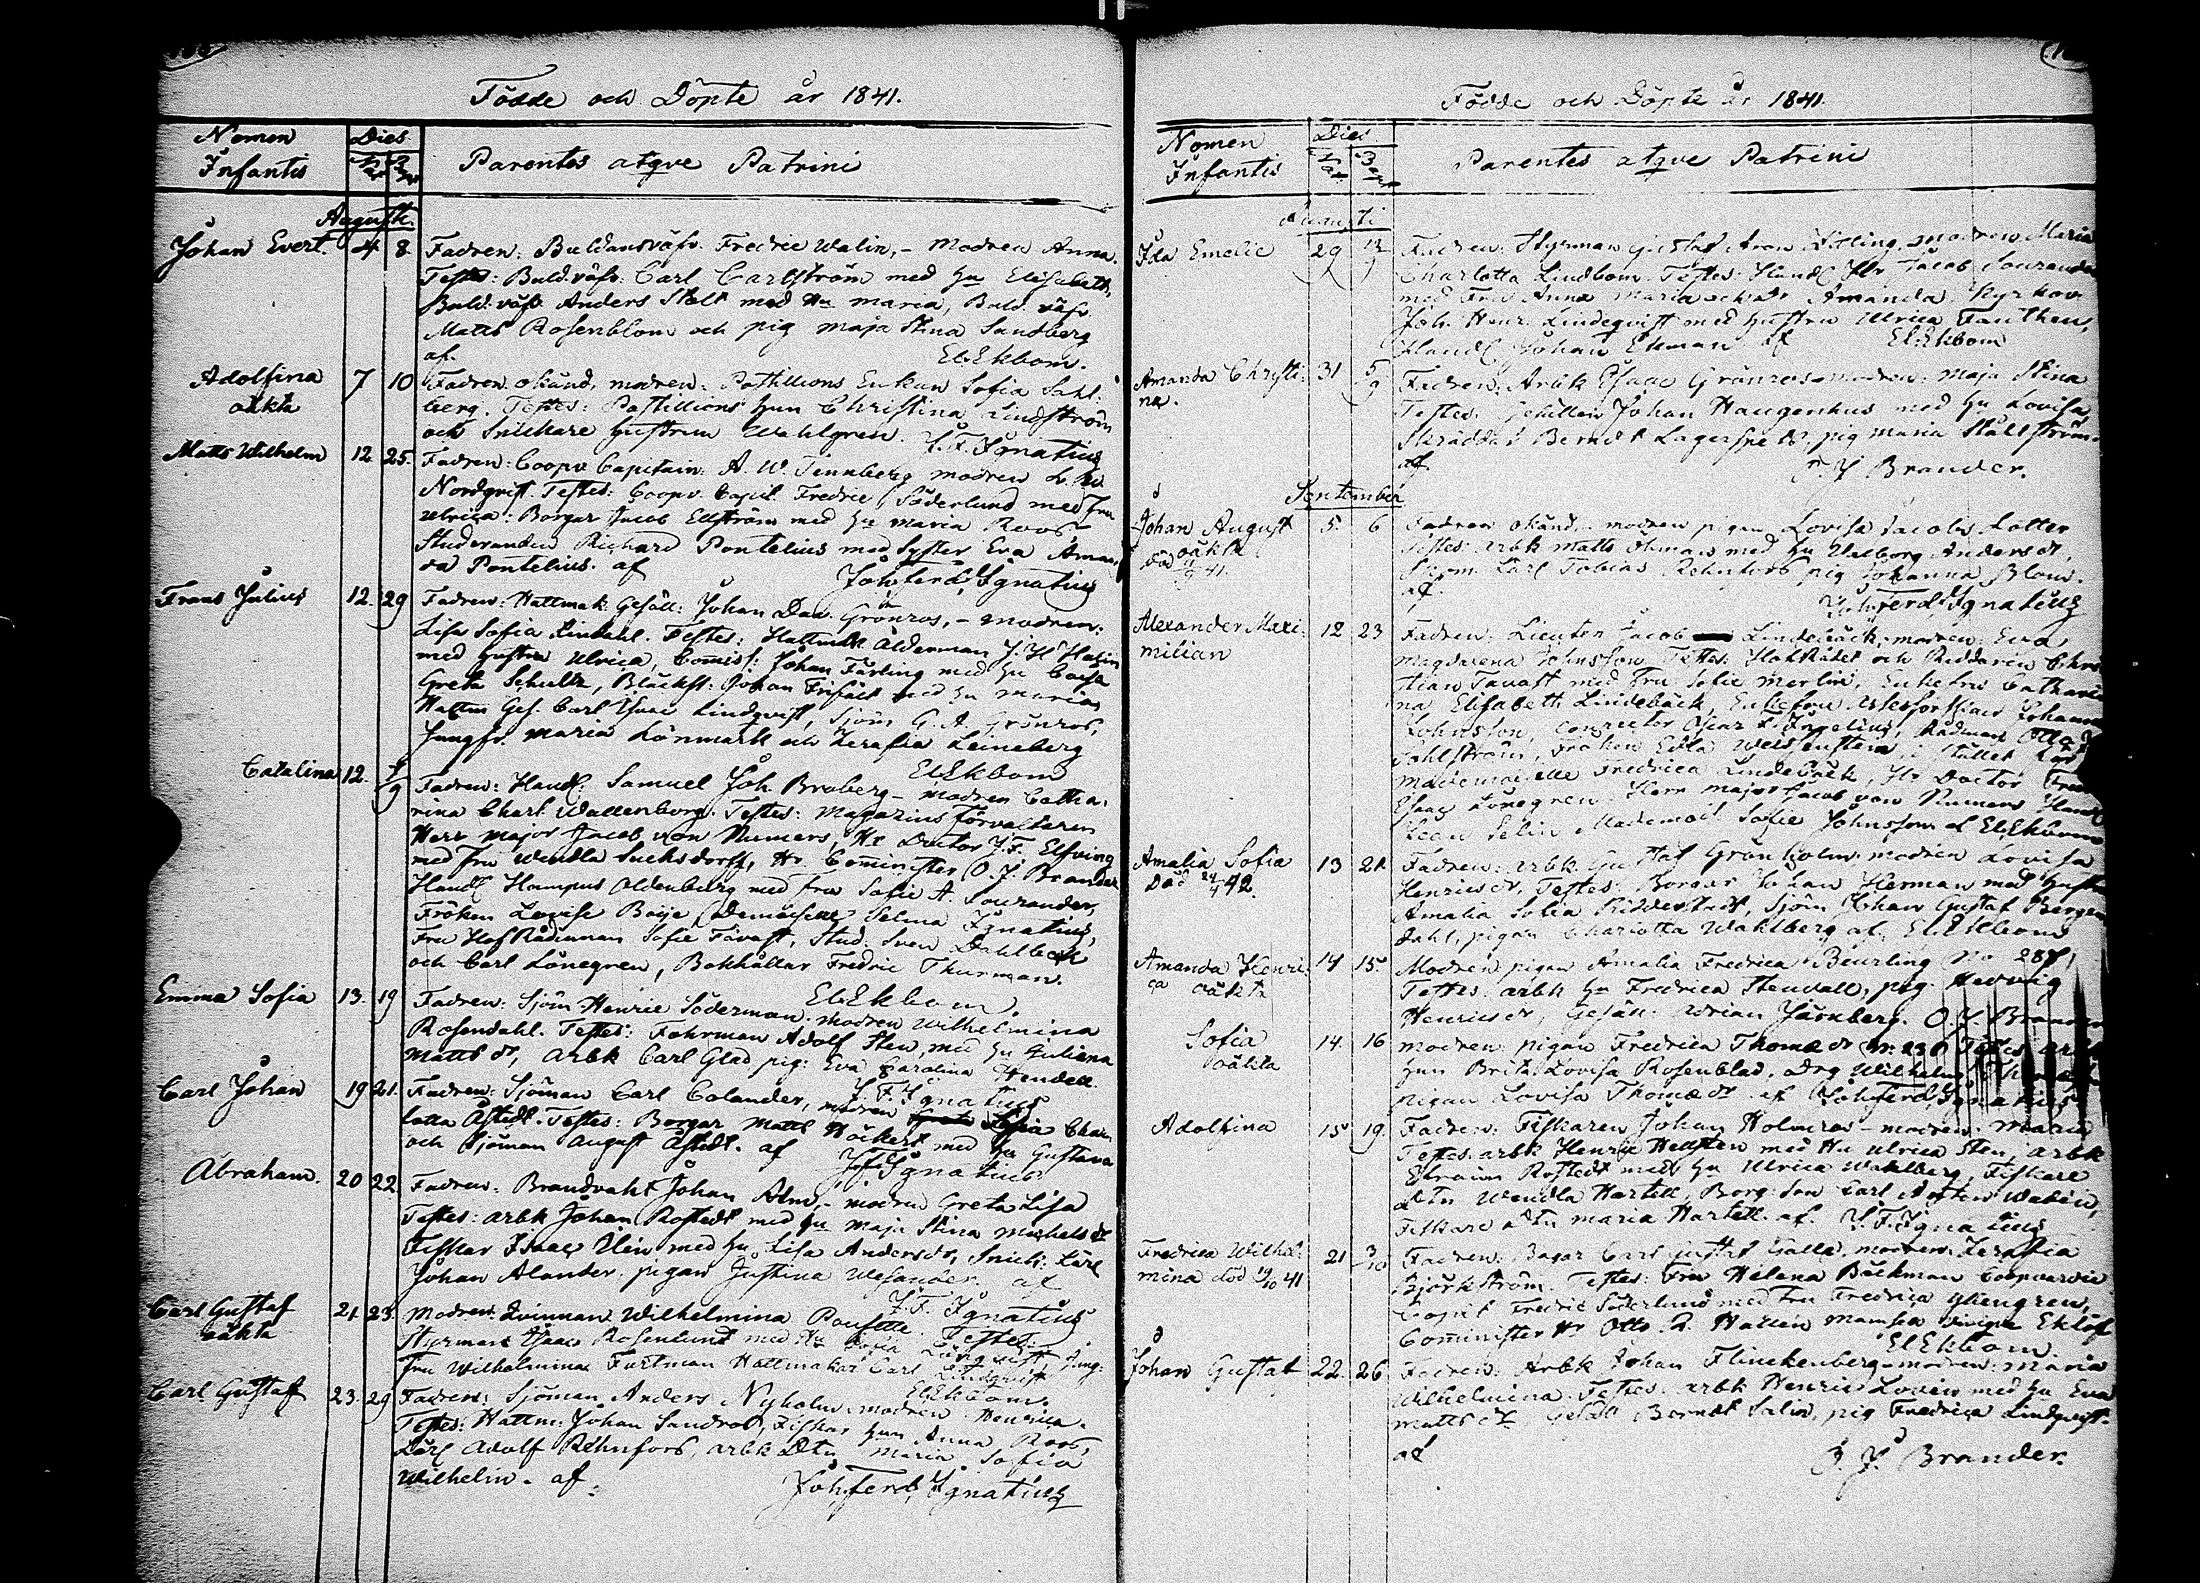 Födde och Döpte år 1841.
Nomen Infantis
Dies
Parentes atqve Patrini
Augusti.
Johan Evert. 4. 8. Fadren: Buldansväfv. Fredric Walin, - Modren Anna.
Testes: Buld. väfv. Carl Carlström med Hu Elisabeth,
Buld. väfv Anders Stolt med Hu Maria, Buld. väfv.
Matts Rosenblom och pig Maja Stina Sandberg
af. El. Ekbom.
Adolfina oäkta 7 10 Fadren okänd, modren: Postillions Enkan Sofia Sahl:
berg. Testes: Postillions Hun Christina Lindström
och Snickare Hustrun Wahlgren. J. F. Ignatius
Matts Wilhelm 12. 25. Fadren: Coopv Capitain: A. W. Tennberg modren
Nordqvist. Testes: Coopv. Capit. Fredric Söderlund med Fru
Ulrica: Borgar Jacob Ellström med Hu Maria Roos
Studeranden Richard Pontelius med Syster Eva Aman:
da Pontelius. af Joh. Ferd. Ignatius
Frans Julius 12. 29 Fadren: Hattmak Gesäll: Johan Dav. Grönros, - modren:
Lisa Sofia Lindahl. Testes: Hattmak Ålderman J. H.
med Hustru Ulrica, Commiss: Johan Färling med Hu Caisa
Greta Schultz, Bläckst: Johan Frifält med Hu Maria,
Hattm Ges. Carl Isaac Lindqvist, Sjöm G. A. Grönros,
Jungfr. Maria Lönmark och Serafia Leineberg
El. Ekbom
Catalina 12. Fadren: Handl: Samuel Joh. Broberg - modren Catha:
rina Charl. Wallenborg. Testes: Magazins förvaltaren
Herr Major Jacob von Numers, Hr Doctor J. F. Elfving
med Fru Wendla Sucksdorff, Hr. Cominister O. J. Brander
Handl Hampus Oldenburg med Fru Sofie A. Sourander,
Fröken Lovise Boije, Demoiselle Selma Ignatius,
Fru Hof Rådinnan Sofie Tavast, Stud. Sven Dahlbeck
och Carl Lönegren, Bokhållar Fredric Thurman.
El. Ekbom.
Emma Sofia 13. 19 Fadren: Sjöm Henric Söderman. modren Wilhelmina
Rosendahl. Testes: Fohrman Adolf Sten, med Hu Juliana
Matts dr, Arbk Carl Glad pig: Eva Carolina Hendell.
J. F. Ignatius
Carl Johan 19 21. Fadren: Sjöman Carl Calander, modren Char:
lotta Åstedt. Testes: Borgar Matts Höckert med Hu Gustava
och Sjöman August Åstedt. af J. F. Ignatius
Abraham. 20 22. Fadren: Brandvakt Johan Alm, - modren Greta Lisa
Testes: Arbk Johan Rostedt med Hu Maja Stina Michels dr
Fiskar Isaac Ulin med Hu Lisa Anders dr, Snick: Lärl
Johan Alander pigan Justina Wesander. af
J. F. Ignatius
Carl Gustaf oäkta 21. 23. Modren: Qvinnan Wilhelmina Testes:
Styrman Isaac Rosenlund med Hu Sofia Jung:
fru Wilhelmina Fortman Hattmakar Carl Lindqvist
El. Ekbom.
Carl Gustaf 23. 29 Fadren: Sjöman Anders Nyholm. modren Henrica.
Testes: Hattm: Johan Sandros, Fiskar Hun Anna Roos,
Lärl Adolf Rehnfors, Arbk Dtn Maria Sofia
Wilhelm. af. Joh. Ferd. Ignatius
Födde och Döpte år 1841.
Nomen Infantis
Dies
Parentes atqve Patrini
Augusti
Ida Emelie 29 12/9 Fadren: Styrman Gustaf Aron modren Maria
Charlotta Lindbom. Testes: Handl Hr Jacob Sourander
med Fru Anna Maria och dr Amanda,
Joh. Henr. Lindeqvist med Hustru Ulrica
Handl Johan Ekman af El. Ekbom
Amanda Christi: na. 31 5/9 Fadren: Arbk Isaac Grönroos modren: Maja Stina
Testes: Gesällen Johan Haugenhus med Hu Lovisa,
Skräddar Berndt Lagerspe pig Maria Stålström.
af O. J. Brander.
September
Johan August oäkta död 41. 5. 6 Fadren okänd. modren pigan Lovisa Jacobs dotter
Testes: Arbk Matts Öhman med Hu Walborg Anders dr,
Lärl Tobias Rehnfors pig Johanna Blom.
af. Joh. Ferd. Ignatius
Alexander Maxi: milian 12 23 Fadren: Lieuten Jacob Lindebäck, modren: Eva
Magdalena Johnsson. Testes: Hof Rådet och Riddaren Chris
tian Tavast med Fru Sofie Merlin, Enkefru Cathari
na Elisabeth Lindebäck, Enkefru
Johnsson, Conrector Oscar F. Ingelius, Rådman Otto
Dahlström, Fröken Edla i stället
Mademoiselle Fredrica Lindebäck, Hr Doctor
Isaac Lönegren. Herr Major Jacob von Numers
Selin Mademois. Sofie Johnsson af El. Ekbom
Amalia Sofia Död 24/4 42. 13 21. Fadren: Arbk Gustaf Grönholm modren Lovisa
Henrics dr, Testes: Borgar Johan Herman med Hustru
Amalia Sofia Ridderstedt, Sjöm Johan Gustaf Bergen
dahl, pigan Charlotta Wahlberg af, El. Ekbom
Amanda Henri: ca oäkta 14 15. Modren pigan Amalia Fredrica Beurling
Testes. Arbk Hu Fredrica Stendall, pig Hedvig
Henrics dr, Gesäll: Adrian Järnberg. O. J. Brander
Sofia oäkta 14. 16 modren: pigan Fredrica Thomæ dr Testes Arbk
Hun Brita Lovisa Rosenblad, Drg Wilhelm
pigan Lovisa Thomæ dr. af Joh. Ferd. Ignatius
Adolfina 15 19. Fadren: Fiskaren Johan Holmros - modren: Maria
Testes. Arbk Henric med Hu Ulrica Sten, Arbk
Efraim Rostedt med Hu Ulrica Wahlberg, Fiskare
Dtn Wendla Hartell, Borg: Son Carl
Fiskare Dtn Maria Hartell. af. J. F. Ignatius
Fredrica Wilhel: mina död 19/10 41 21 3/10 Fadren: Bagar Carl Gustaf modren: Serafia
Björkström. Testes: Fru Helena Bäckman Coopvardie
Capit Fredric Söderlund med Fru Fredrica
Cominister Hr Otto J. Hallen Mamsell Eklöf
El. Ekbom.
Johan Gustaf 22. 26 Fadren: Arbk Johan Flinckenberg modren: Maria
Wilhelmina. Testes. Arbk Henric Lovin med Hu Eva
Matts dr Gesäll Berndt Salin, pig Fredrica Lindqvist.
af O. J. Brander.